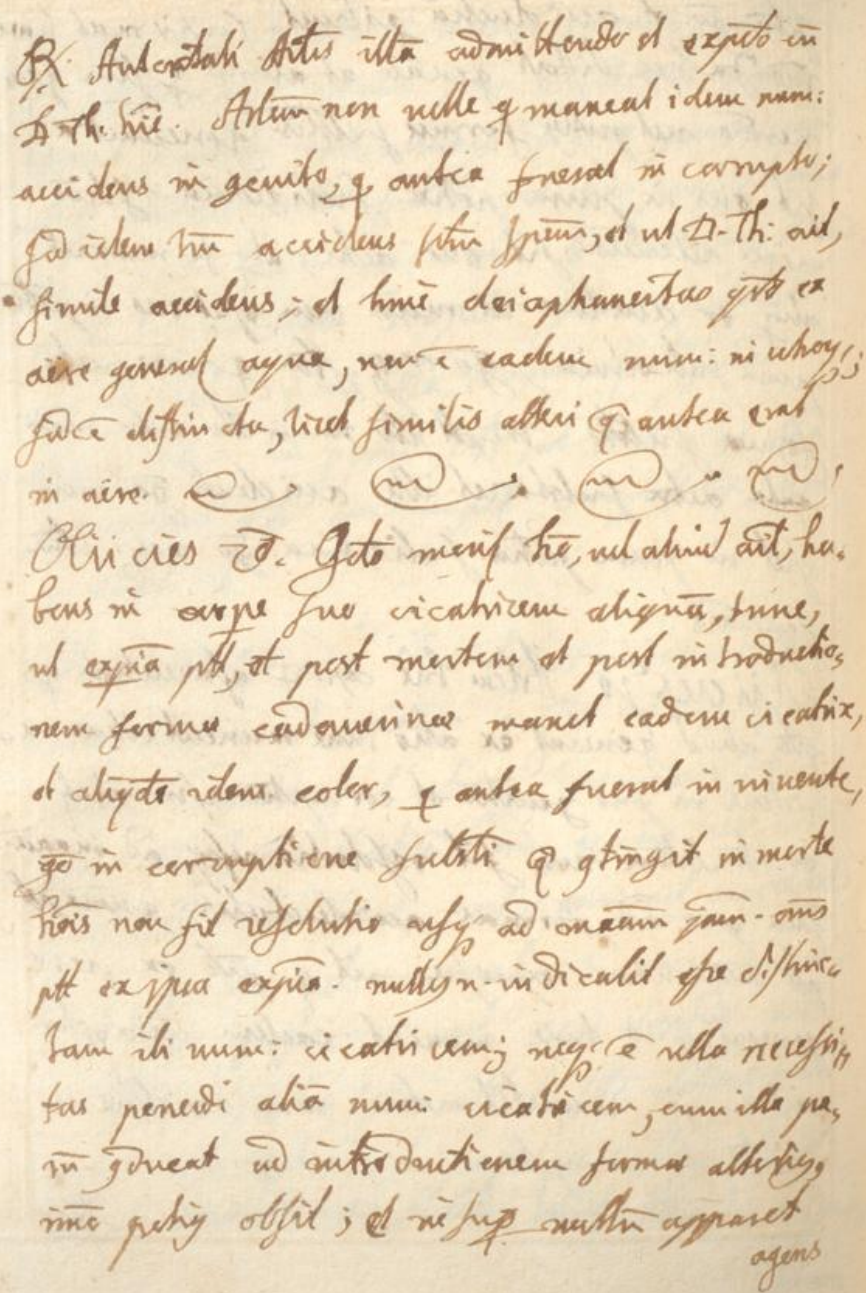 R. Autoritati Artis illa admittendo et expdo cū
D. Th. hic. Artem non velle q maneat idem num:
accidens in genito, q antea fuerat in corrupto;
sed idem tm accidens sm spem, et ut D. Th: ait,
simile accidens; et hinc deiaphaneitas qdo ex
aere generat aqua, non ē eadem num: in utroq;
sed ē distincta, licet similis alteri q antea erat
in aere.
Obiicies 2o. Qdo morit ho, vel aliud ait, ha-
bens in corpe suo cicatricem aliquā, tunc,
ut expria ptt, et post mortem et post introductio-
nem formæ cadauerinæ manet eadem cicatrix,
et aliqdo idem color, q antea fuerat in vivente,
go in corruptione substi q gtingit in morte
hois non fit resolutio usq ad maam pam. ans
ptt ex ipsa expria. nullus n. indicabit esse distinc-
tam ibi num: cicatricem; neq; ē ulla necessi-
tas ponendi aliā num: cicatricem, cum illa pa-
m gducat ad introductionem formæ alterius,
imo potius obsit; et insup nullū apparet
agens